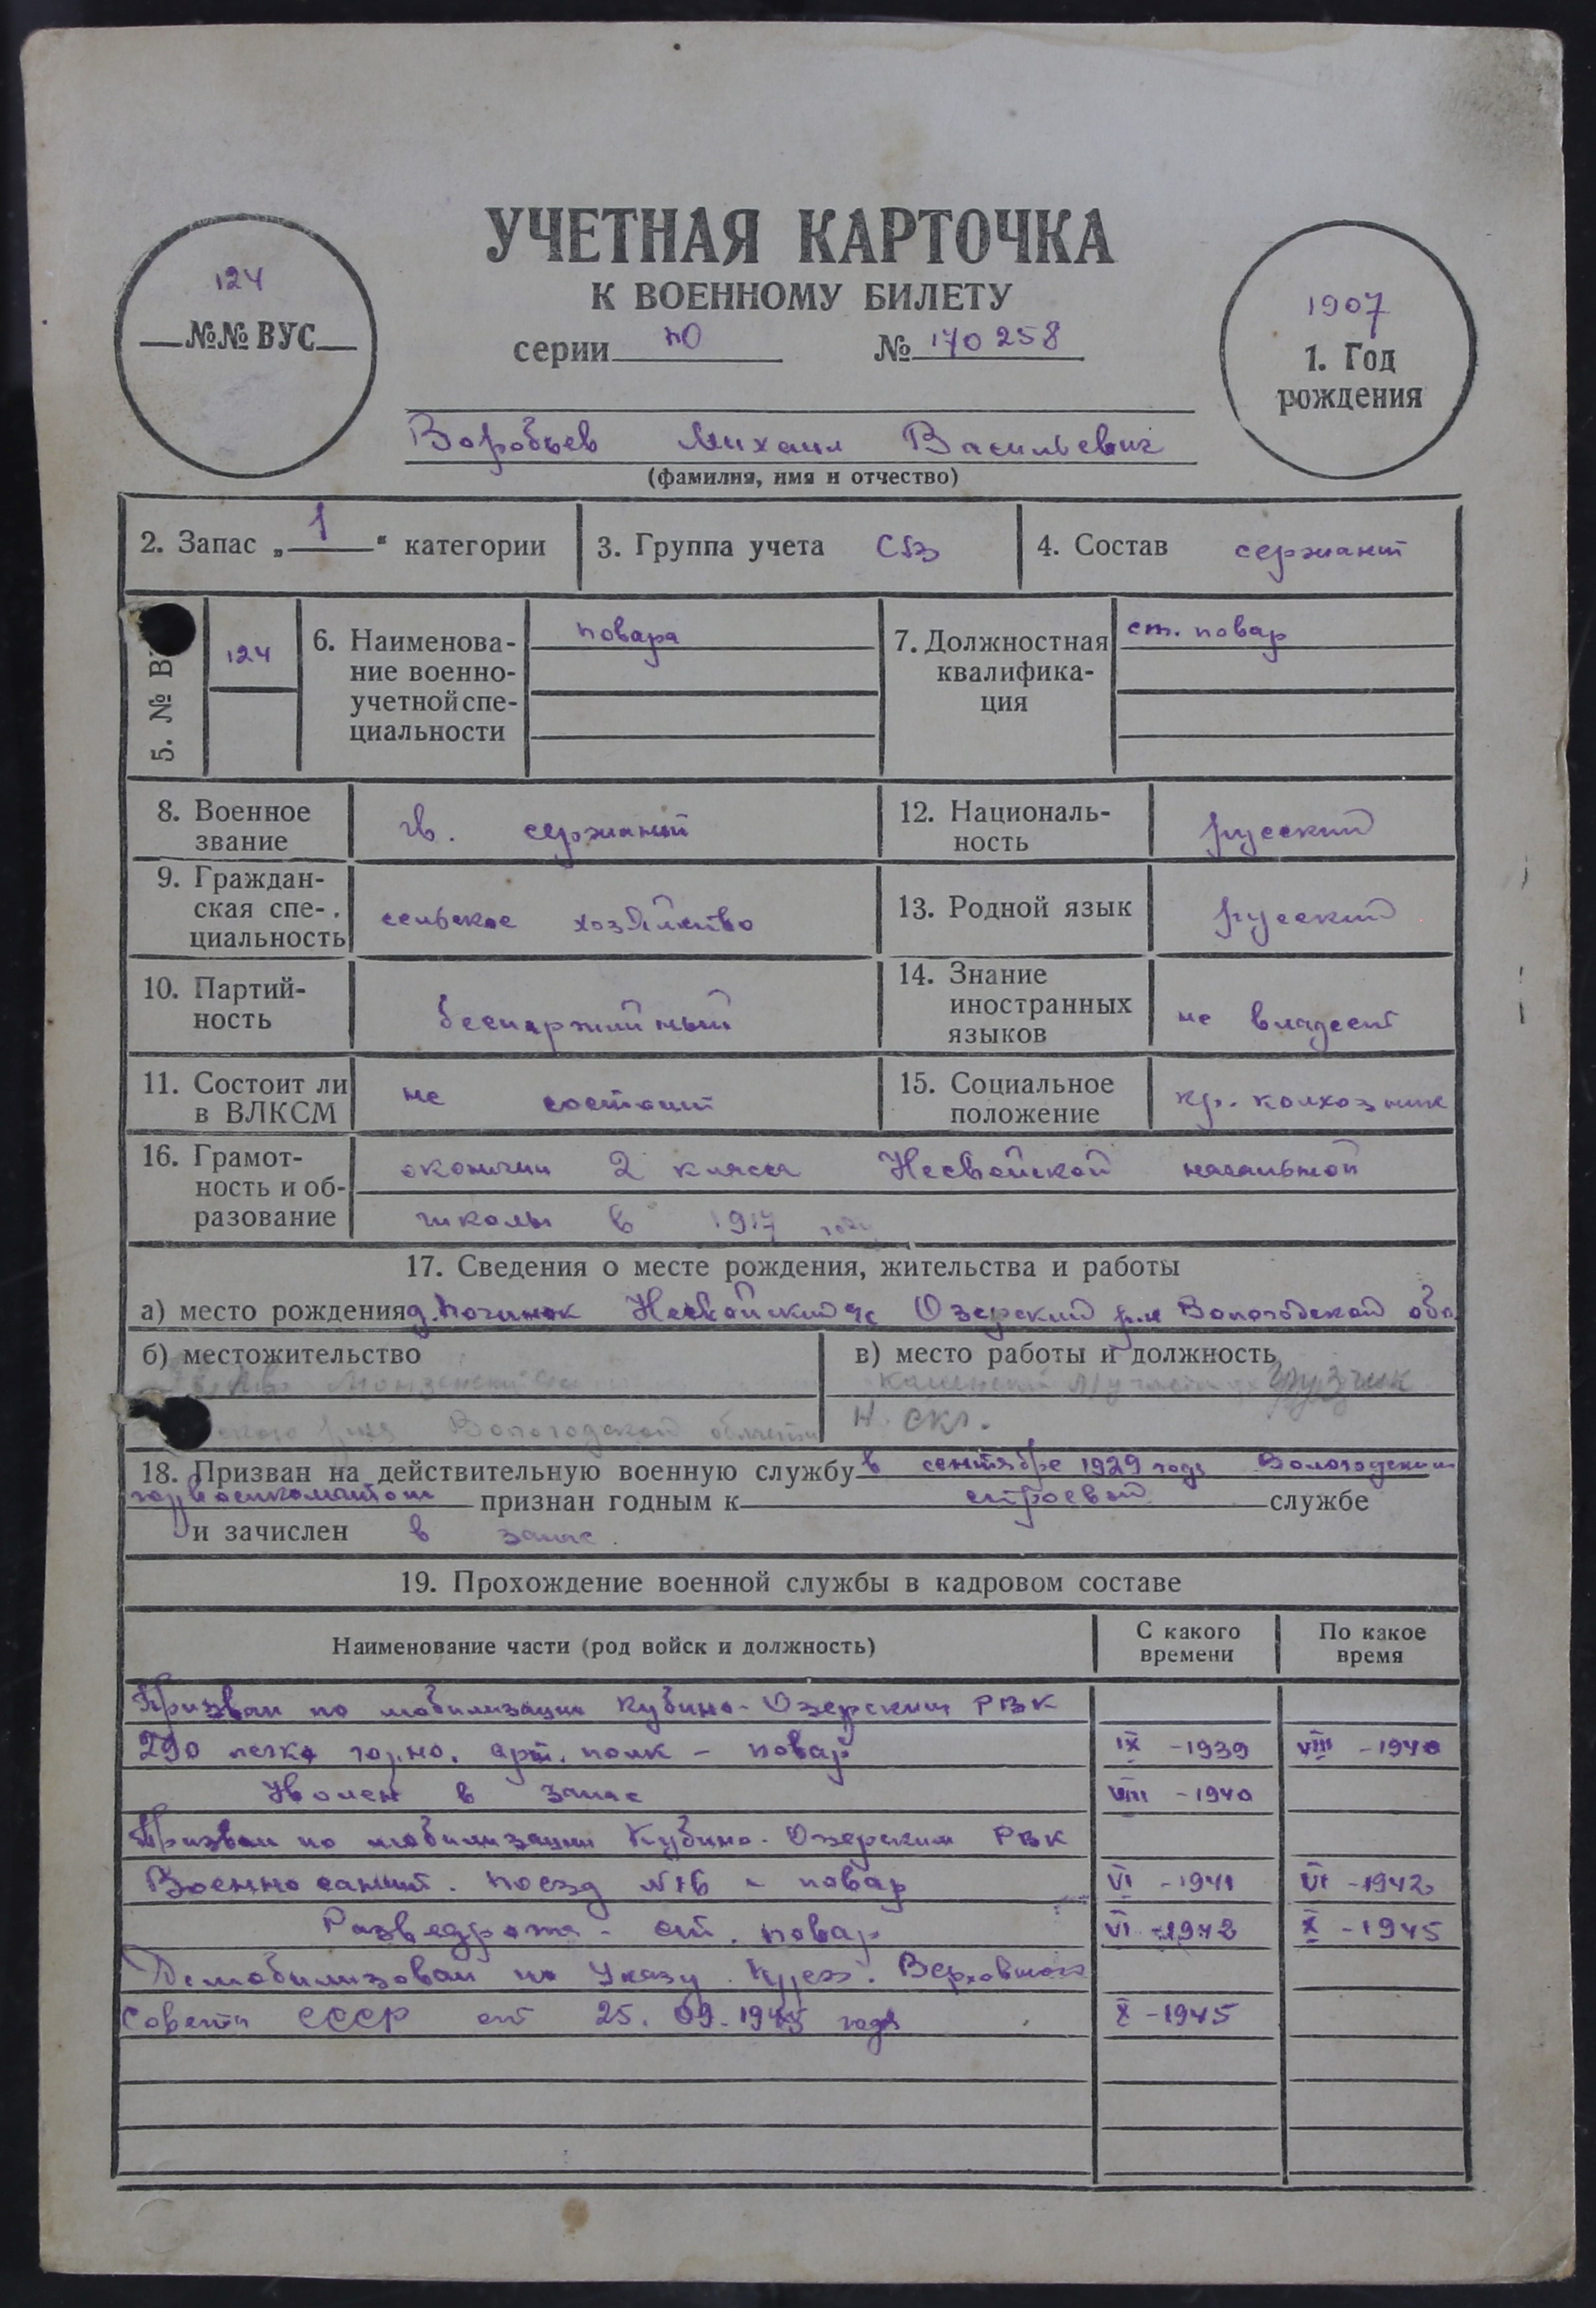 УЧЕТНАЯ КАРТОЧКА
К ВОЕННОМУ БИЛЕТУ
124
№№ ВУС
серии ПО № 170258
1907
1. Год
рождения
Воробьев Михаил Васильевич
(фамилия, имя и отчество)
2. Запас „ 1 “ категории
3. Группа учета
4. Состав сержант
5. № В
124
6. Наименова-
ние военно-
учетной спе-
циальности
повара
7. Должностная
квалифика-
ция
ст. повар
8. Военное
звание
гв. сержант
12. Националь-
ность
русский
9. Граждан-
ская спе-
циальность
сельское хозяйство
13. Родной язык
русский
10. Партий-
ность
беспартийный
14. Знание
иностранных
языков
не владеет
11. Состоит ли
в ВЛКСМ
не состоит
15. Социальное
положение
кр. колхозник
16. Грамот-
ность и об-
разование
окончил 2 класса Несвойской начальной
школы в 1917 году
17. Сведения о месте рождения, жительства и работы
а) место рождения д. Починок Несвойский с/с Озерский р-н Вологодской обл
б) местожительство
Вологодской области
в) место работы и должность
грузчик
Н. скл.
18. Призван на действительную военную службу в сентябре 1929 года Вологодским
горвоенкоматом признан годным к строевой службе
и зачислен в запас
19. Прохождение военной службы в кадровом составе
Наименование части (род войск и должность)
С какого
времени
По какое
время
Призван по мобилизации Кубино-Озерским РВК
290 легко гор.но. арт. полк - повар IX - 1939 VIII - 1940
Уволен в запас VIII - 1940
Призван по мобилизации Кубино-Озерским РВК
Военно санит. поезд - повар VI - 1941 VI - 1942
Разведрота - ст. повар VI - 1942 X - 1945
Демобилизован по Указу През. Верховного
Совета СССР от 25.09.1945 года X - 1945